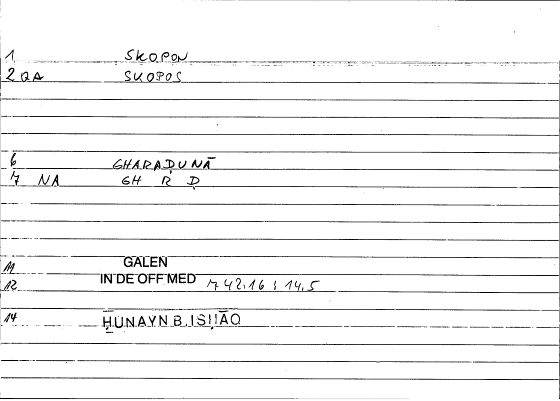 1 SKOPON
2 QA SKOPOS
6 GHARAḌUNĀ
7 NA GH R Ḍ
11 GALEN
12 IN DE OFF MED 742.16 ; 14.5
14 ḤUNAYN B. ISḤĀQ